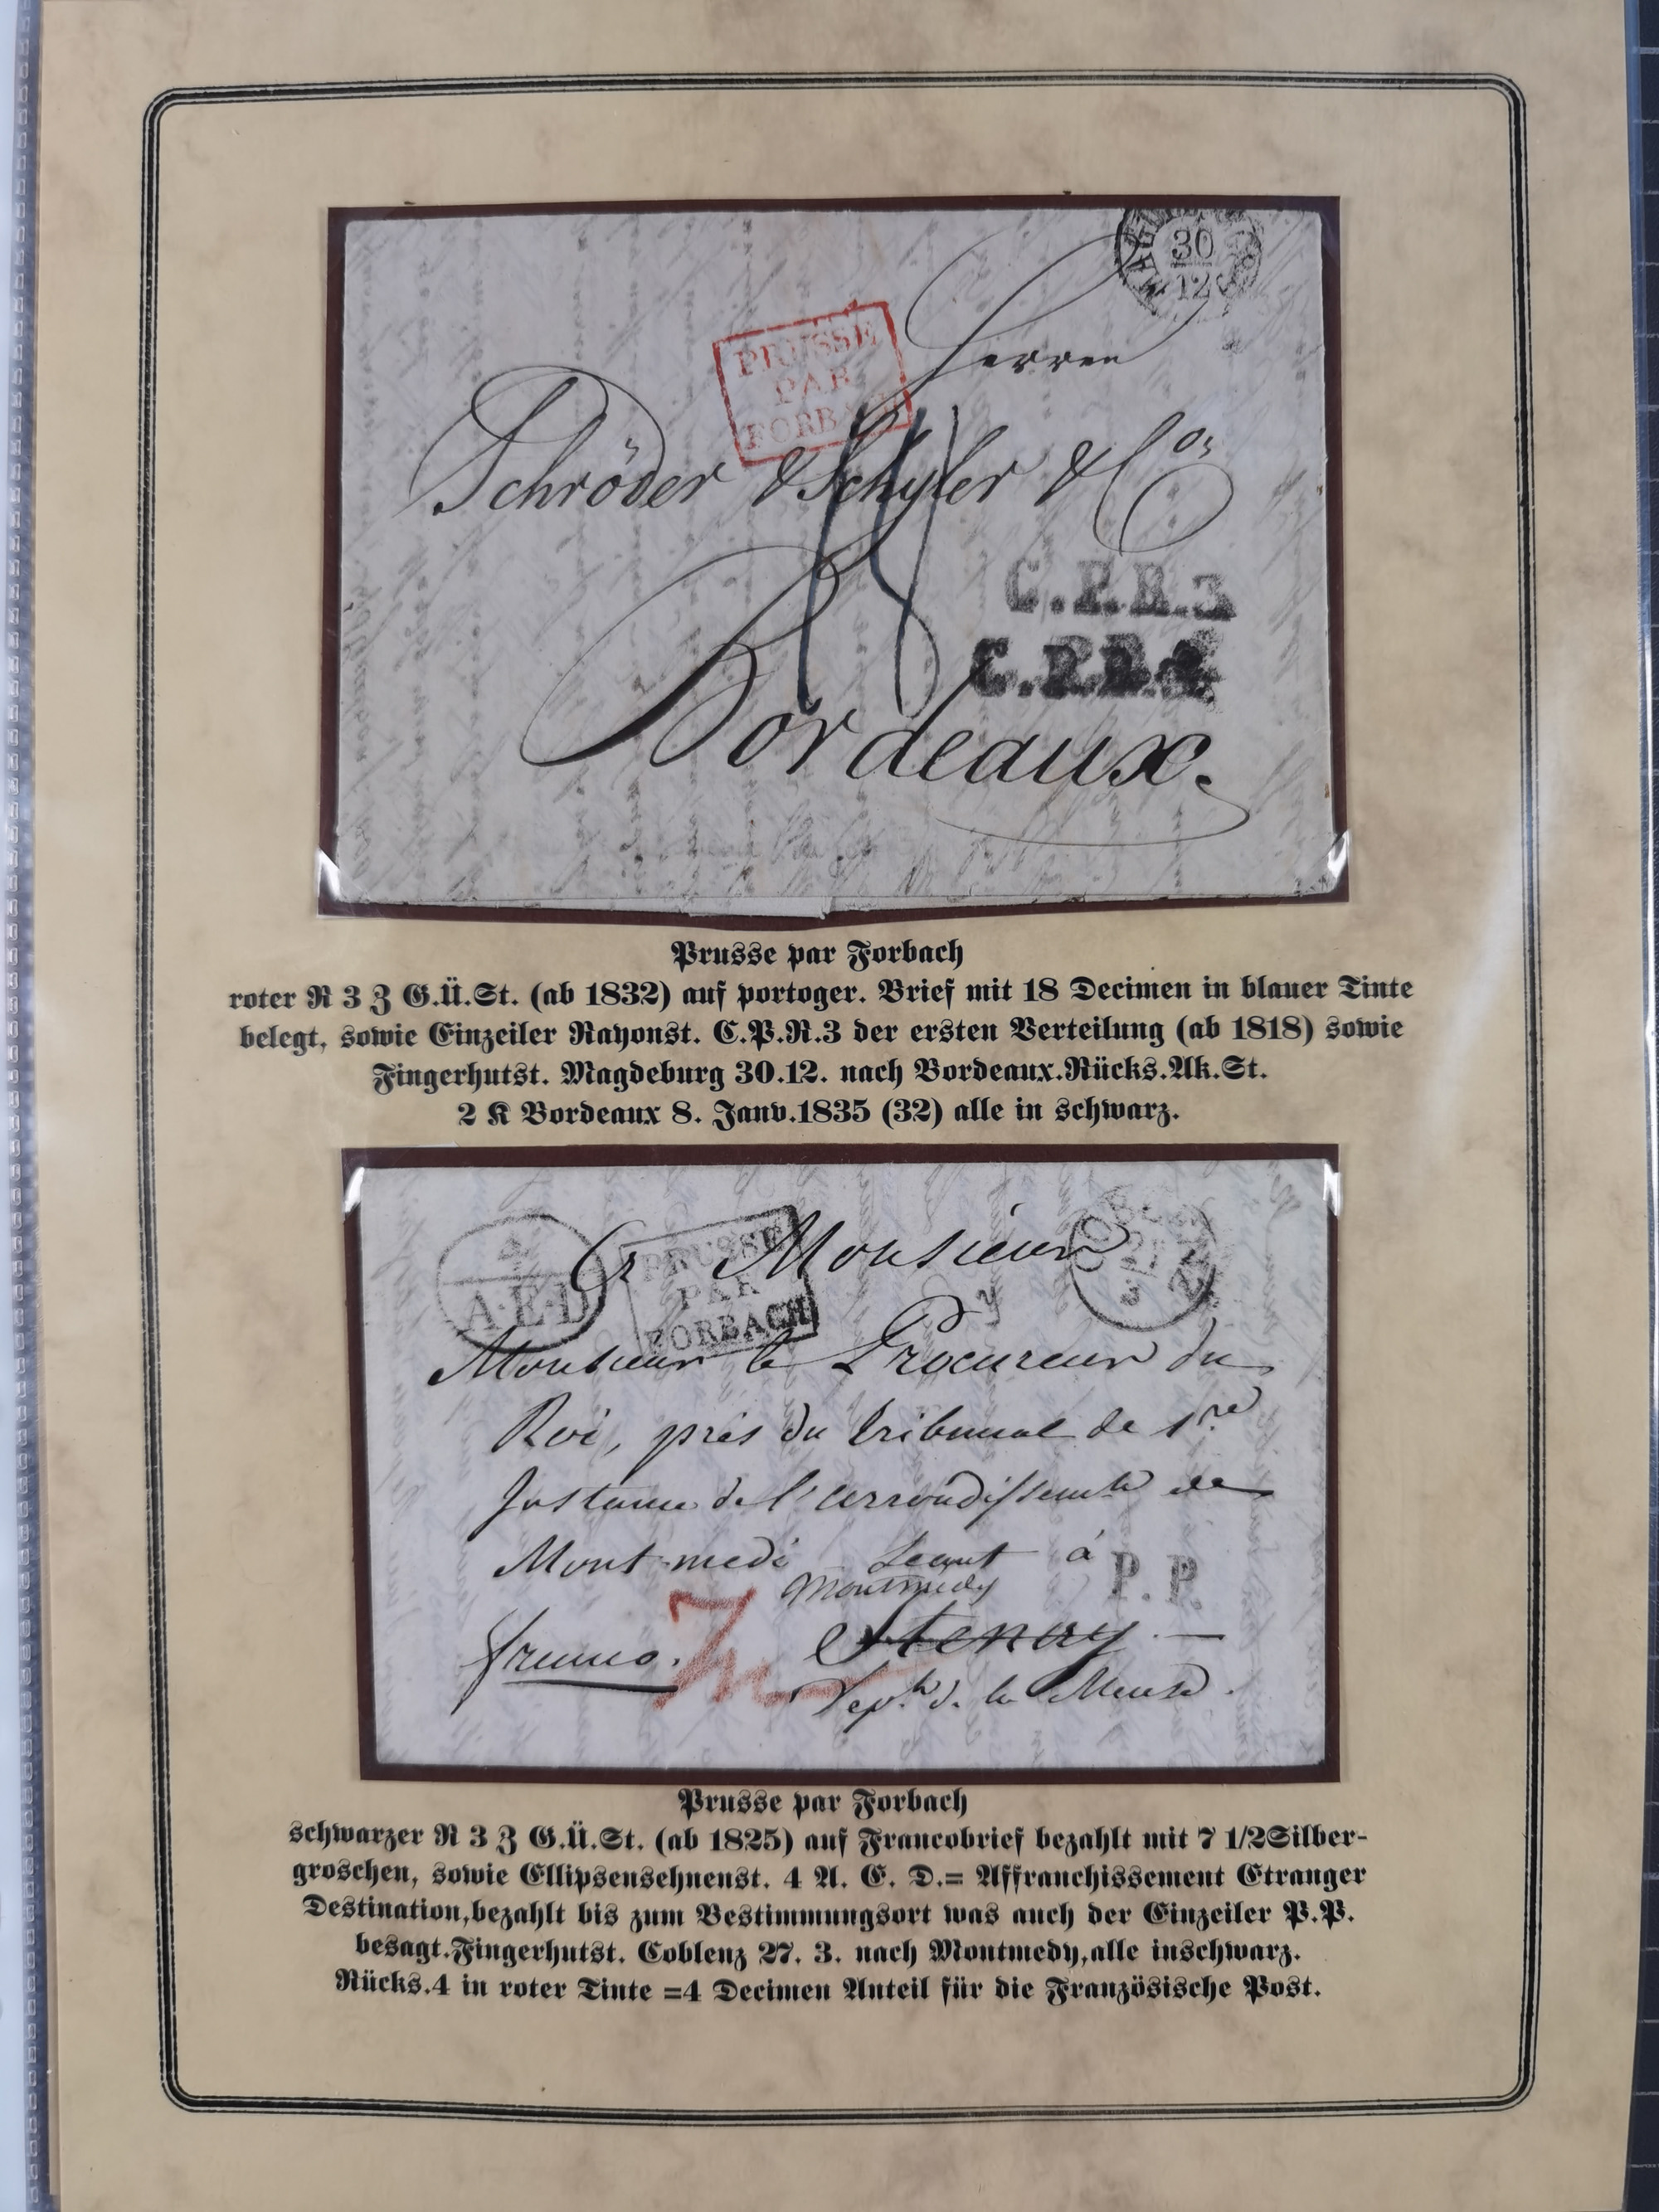 30
12
PRUSSE
PAR
FORBACH
Herren
Schröder & Schyler & Co;
C.P.R.3
C.P.R.
Bordeaux.
Prusse par Forbach
roter R 3 Z G.Ü.St. (ab 1832) auf portoger. Brief mit 18 Decimen in blauer Tinte
belegt, sowie Einzeiler Rayonst. C.P.R.3 der ersten Verteilung (ab 1818) sowie
Fingerhutst. Magdeburg 30.12. nach Bordeaux.Rücks.Ak.St.
2 K Bordeaux 8. Janv.1835 (32) alle in schwarz.
4
A.E.D
PRUSSE
PAR
FORBACH
A Monsieur
3
Monsieur le Procureur du
Roi, près du tribunal de 1re
Instance de l'arrondissement de
Mont-medi Seant à
P.P.
Montmedy
franco.
Stenay
Dept. d. la Meuse.
Prusse par Forbach
schwarzer R 3 Z G.Ü.St. (ab 1825) auf Francobrief bezahlt mit 7 1/2Silber-
groschen, sowie Ellipsensehnenst. 4 A. E. D.= Affranchissement Etranger
Destination,bezahlt bis zum Bestimmungsort was auch der Einzeiler P.P.
besagt.Fingerhutst. Coblenz 27. 3. nach Montmedy,alle inschwarz.
Rücks.4 in roter Tinte =4 Decimen Anteil für die Französische Post.